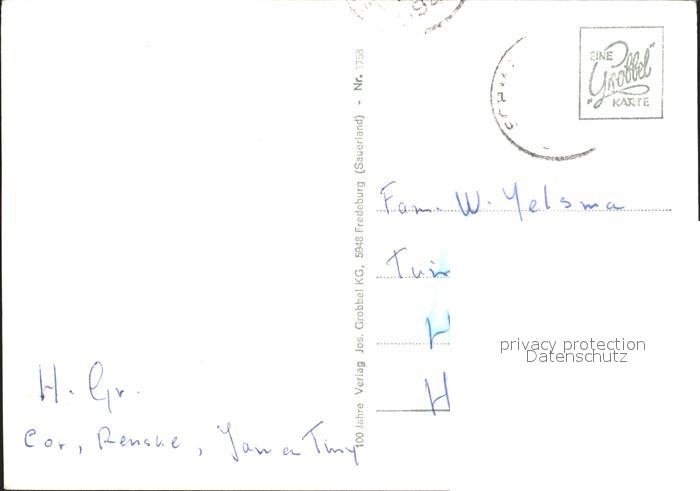 H. Gr.
Cor, Renske, Jan en Tiny
100 Jahre Verlag Jos. Grobbel KG, 5948 Fredeburg (Sauerland) - Nr. 5768
EINE
"Grobbel"
KARTE
Fam. W. Yelsma
Tuin
H
H
privacy protection
Datenschutz